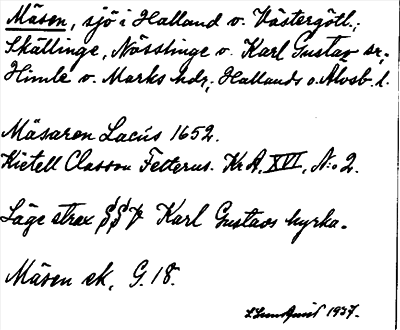 Mäsen, sjö i Halland o. Västergötl.;
Skällinge, Nösslinge o. Karl Gustav sr;
Himle o. Marks hdr, Hallands o. Älvsb. l.
Mäsaren Lacus 1652.
Kietell Classon Felterus. KrA, XVI, N:o 2.
Läge strax Karl Gustavs kyrka.
Mäsen ek, G. 18.
1937.